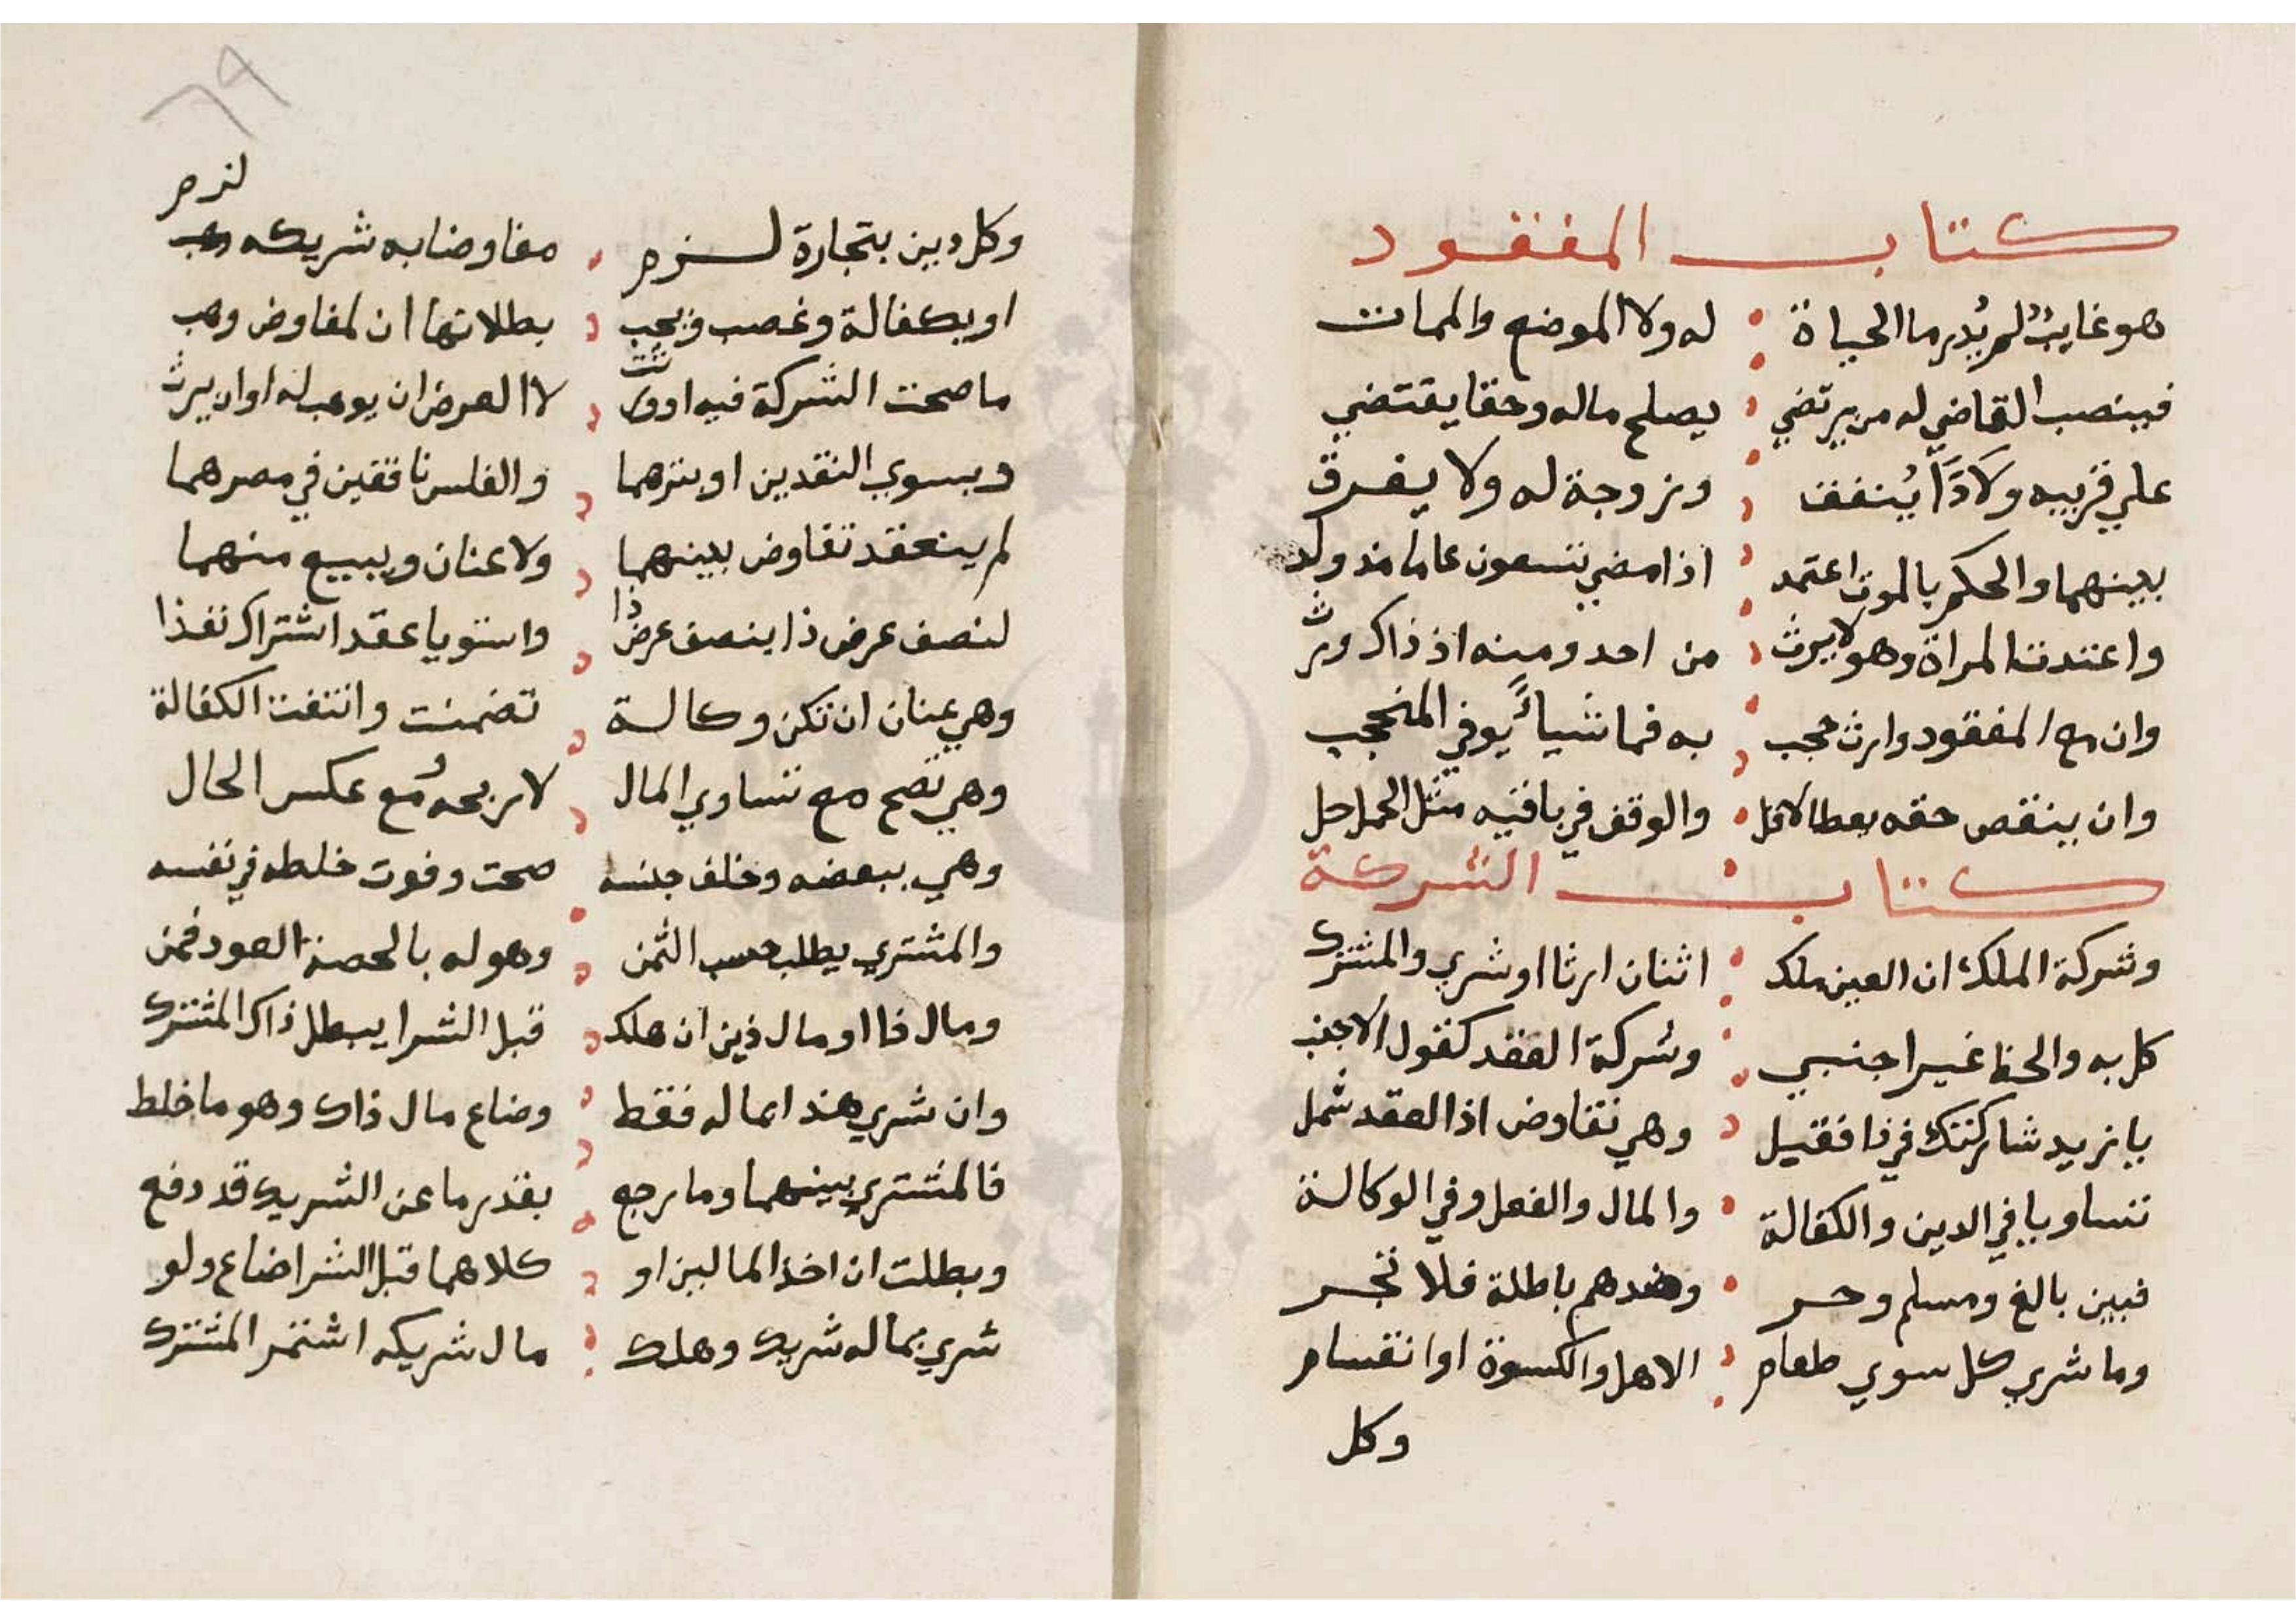 كتاب المفقود
هو غايب لم يدر ما الحياة له ولا الموضع والممات
فينصب القاضي له من يرتضي يصلح ماله وحقا يقتضي
علي قريبه ولادا ينفق وزوجة له ولا يفرق
بينهما والحكم بالموت اعتمد اذا مضي تسعون عاما مذ ولد
واعتدت المراة وهو لا يرث من احد ومنه اذ ذاك ورث
وان مع المفقود وارث حجب به فما شياء يوفي المنحجب
وان ينقص حقه يعطا الاقل والوقف في باقيه مثل الحمل حل
كتاب الشركة
وشركة الملك ان العين ملك اثنان ارثا او شري والمشترك
كل به والحظ غير اجنبي وشركة العقد كقول الاجنب
يا زيد شاركتك في ذا فقيل وهي تفاوض اذا العقد شمل
تساويا في الدين والكفالة والمال والفعل وفي الوكالة
فبين بالغ ومسلم وحر وضدهم باطلة فلا تجر
وما شري كل سوي طعام الاهل والكسوة او اقسام
وكل
٦٩
لزم
وكل دين بتجارة لزم مفاوضا به شريكه
او بكفالة وغصب ويجب بطلانها ان لمفاوض وهب
ما صحت الشركة فيه او ورث لا العرض ان يوهب له او ان يرث
وبسوي النقدين او بتزهما والفلس نافقين في مصرهما
لم ينعقد تفاوض بينهما ولا عنان وببيع منهما
لنصف عرض ذا بنصف عرض ذا واستويا عقد اشتراك نفذا
وهي عنان ان تكن وكالة تضمنت وانتفت الكفالة
وهي تصح مع تساوي المال لا ربحه ومع عكس الحال
وهي ببعضه وخلف جنسه صحت وفوت خلطه في نفسه
والمشتري يطلب حسب الثمن وهو له بالحصة العود قمن
ومال ذا او مال ذين ان هلك قبل الشرا يبطل ذاك المشترك
وان شري هذا بماله فقط وضاع مال ذاك وهو ما خلط
فالمشتري بينهما وما رجع بقدر ما عن الشريك قد دفع
وبطلت ان اخذ المالين او كلاهما قبل الشرا ضاع ولو
شري بماله شريك وهلك مال شريكه اشتمر المشترك